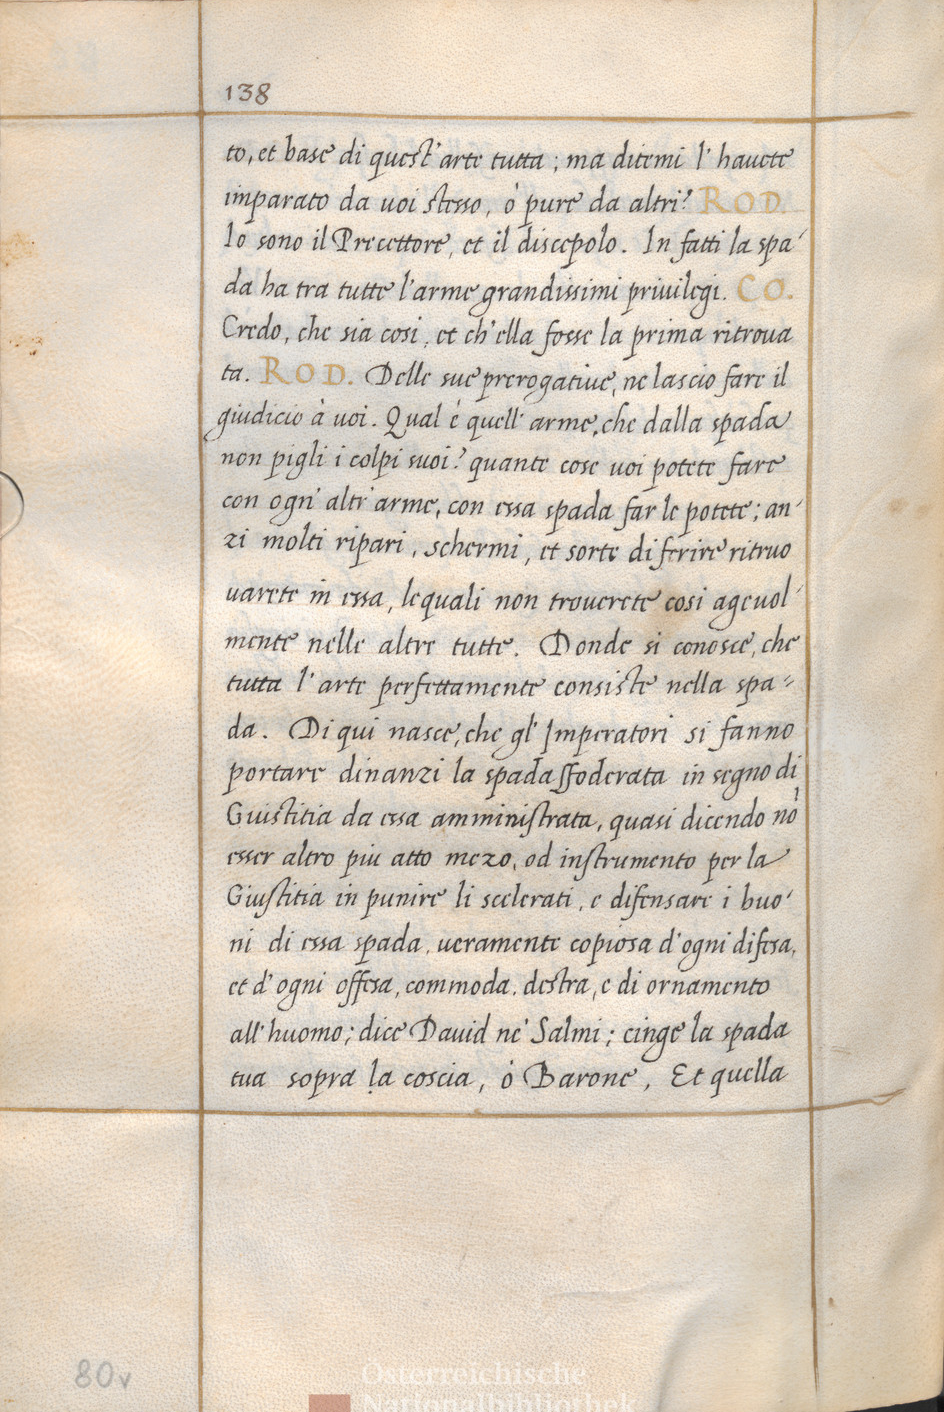 138
to, et base di quest' arte tutta ; ma ditemi l' hauete
imparato da uoi stesso, ò pure da altri? ROD.
Io sono il Precettore, et il discepolo. In fatti la spa-
da ha tra tutte l'arme grandissimi priuilegi. CO.
Credo, che sia cosi, et ch'ella fosse la prima ritroua
ta. ROD. Delle sue prerogatiue, ne lascio fare il
giudicio à uoi. Qual è quell' arme, che dalla spada
non pigli i colpi suoi? quante cose uoi potete fare
con ogn' altr' arme, con essa spada far le potete; an-
zi molti ripari, schermi, et sorte di ferire ritruo
uarete in essa, lequali non trouerete cosi ageuol-
mente nelle altre tutte. Donde si conosce, che
tutta l' arte perfettamente consiste nella spa-
da. Di qui nasce, che gl' Imperatori si fanno
portare dinanzi la spada sfoderata in segno di
Giustitia da essa amministrata, quasi dicendo nõ
esser altro piu atto mezo, od instrumento per la
Giustitia in punire li scelerati, e difensare i buo-
ni di essa spada, ueramente copiosa d'ogni difesa,
et d' ogni offesa, commoda, destra, e di ornamento
all' huomo; dice Dauid ne' Salmi; cinge la spada
tua sopra la coscia, ò Barone, Et quella
80v
Österreichische
Nationalbibliothek